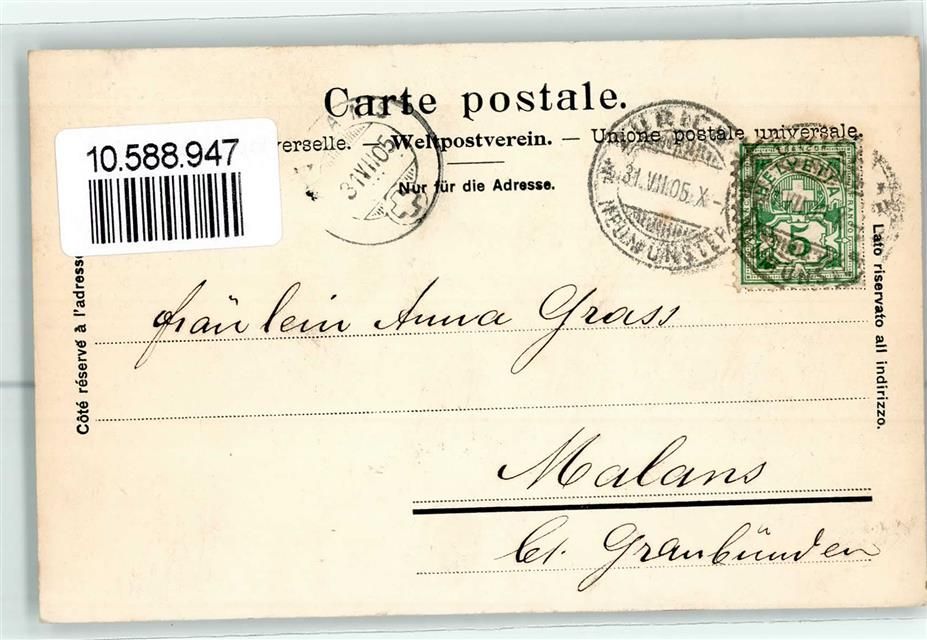 Carte postale.
erselle. — Weltpostverein. — Unione postale universale.
Nur für die Adresse.
10.588.947
31.VII.05
31.VII.05.X-
NEUMÜNSTER
FRANCO
HELVETIA
5
Côté réservé à l'adresse
Lato riservato all indirizzo.
Fräulein Anna Grass
Malans
Ct. Graubünden